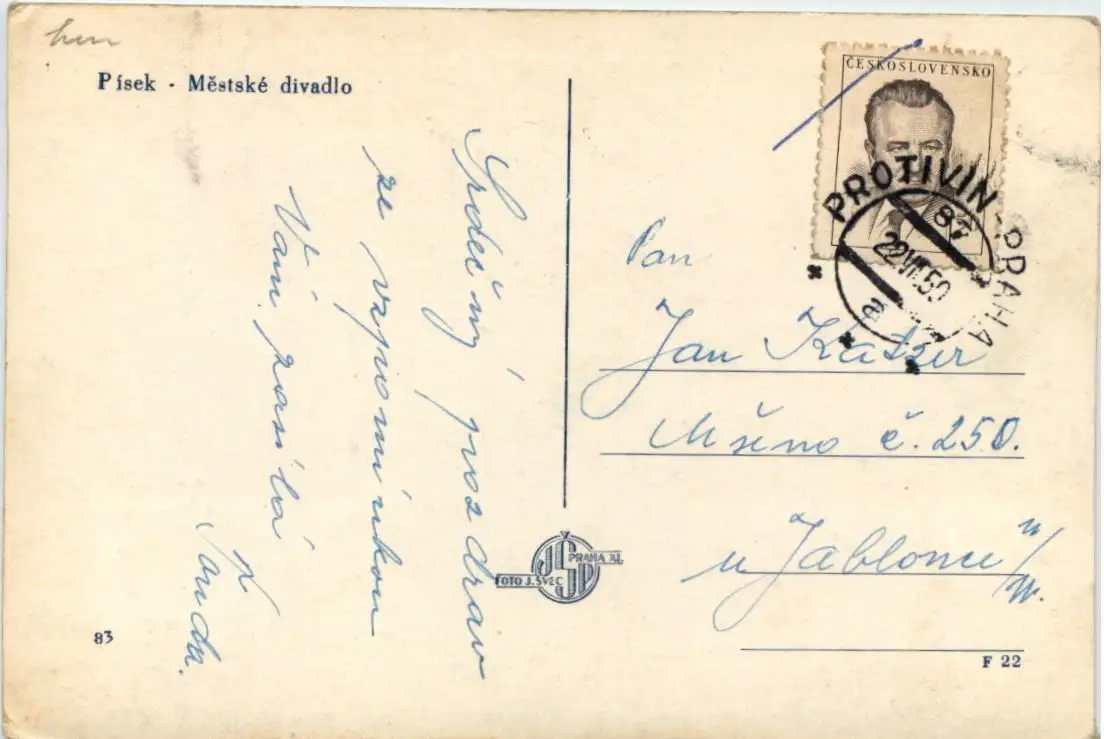 Písek - Městské divadlo
Srdečný pozdrav
ze vzpomínkou
Vám zasílá
ČESKOSLOVENSKO
PROTIVÍN - PRAHA
87
22.VII.50
Pan
Jan Katzer
Mšeno č. 250.
u Jablonce n/N.
JŠP
PRAHA XI.
FOTO J. ŠVEC
83
F 22